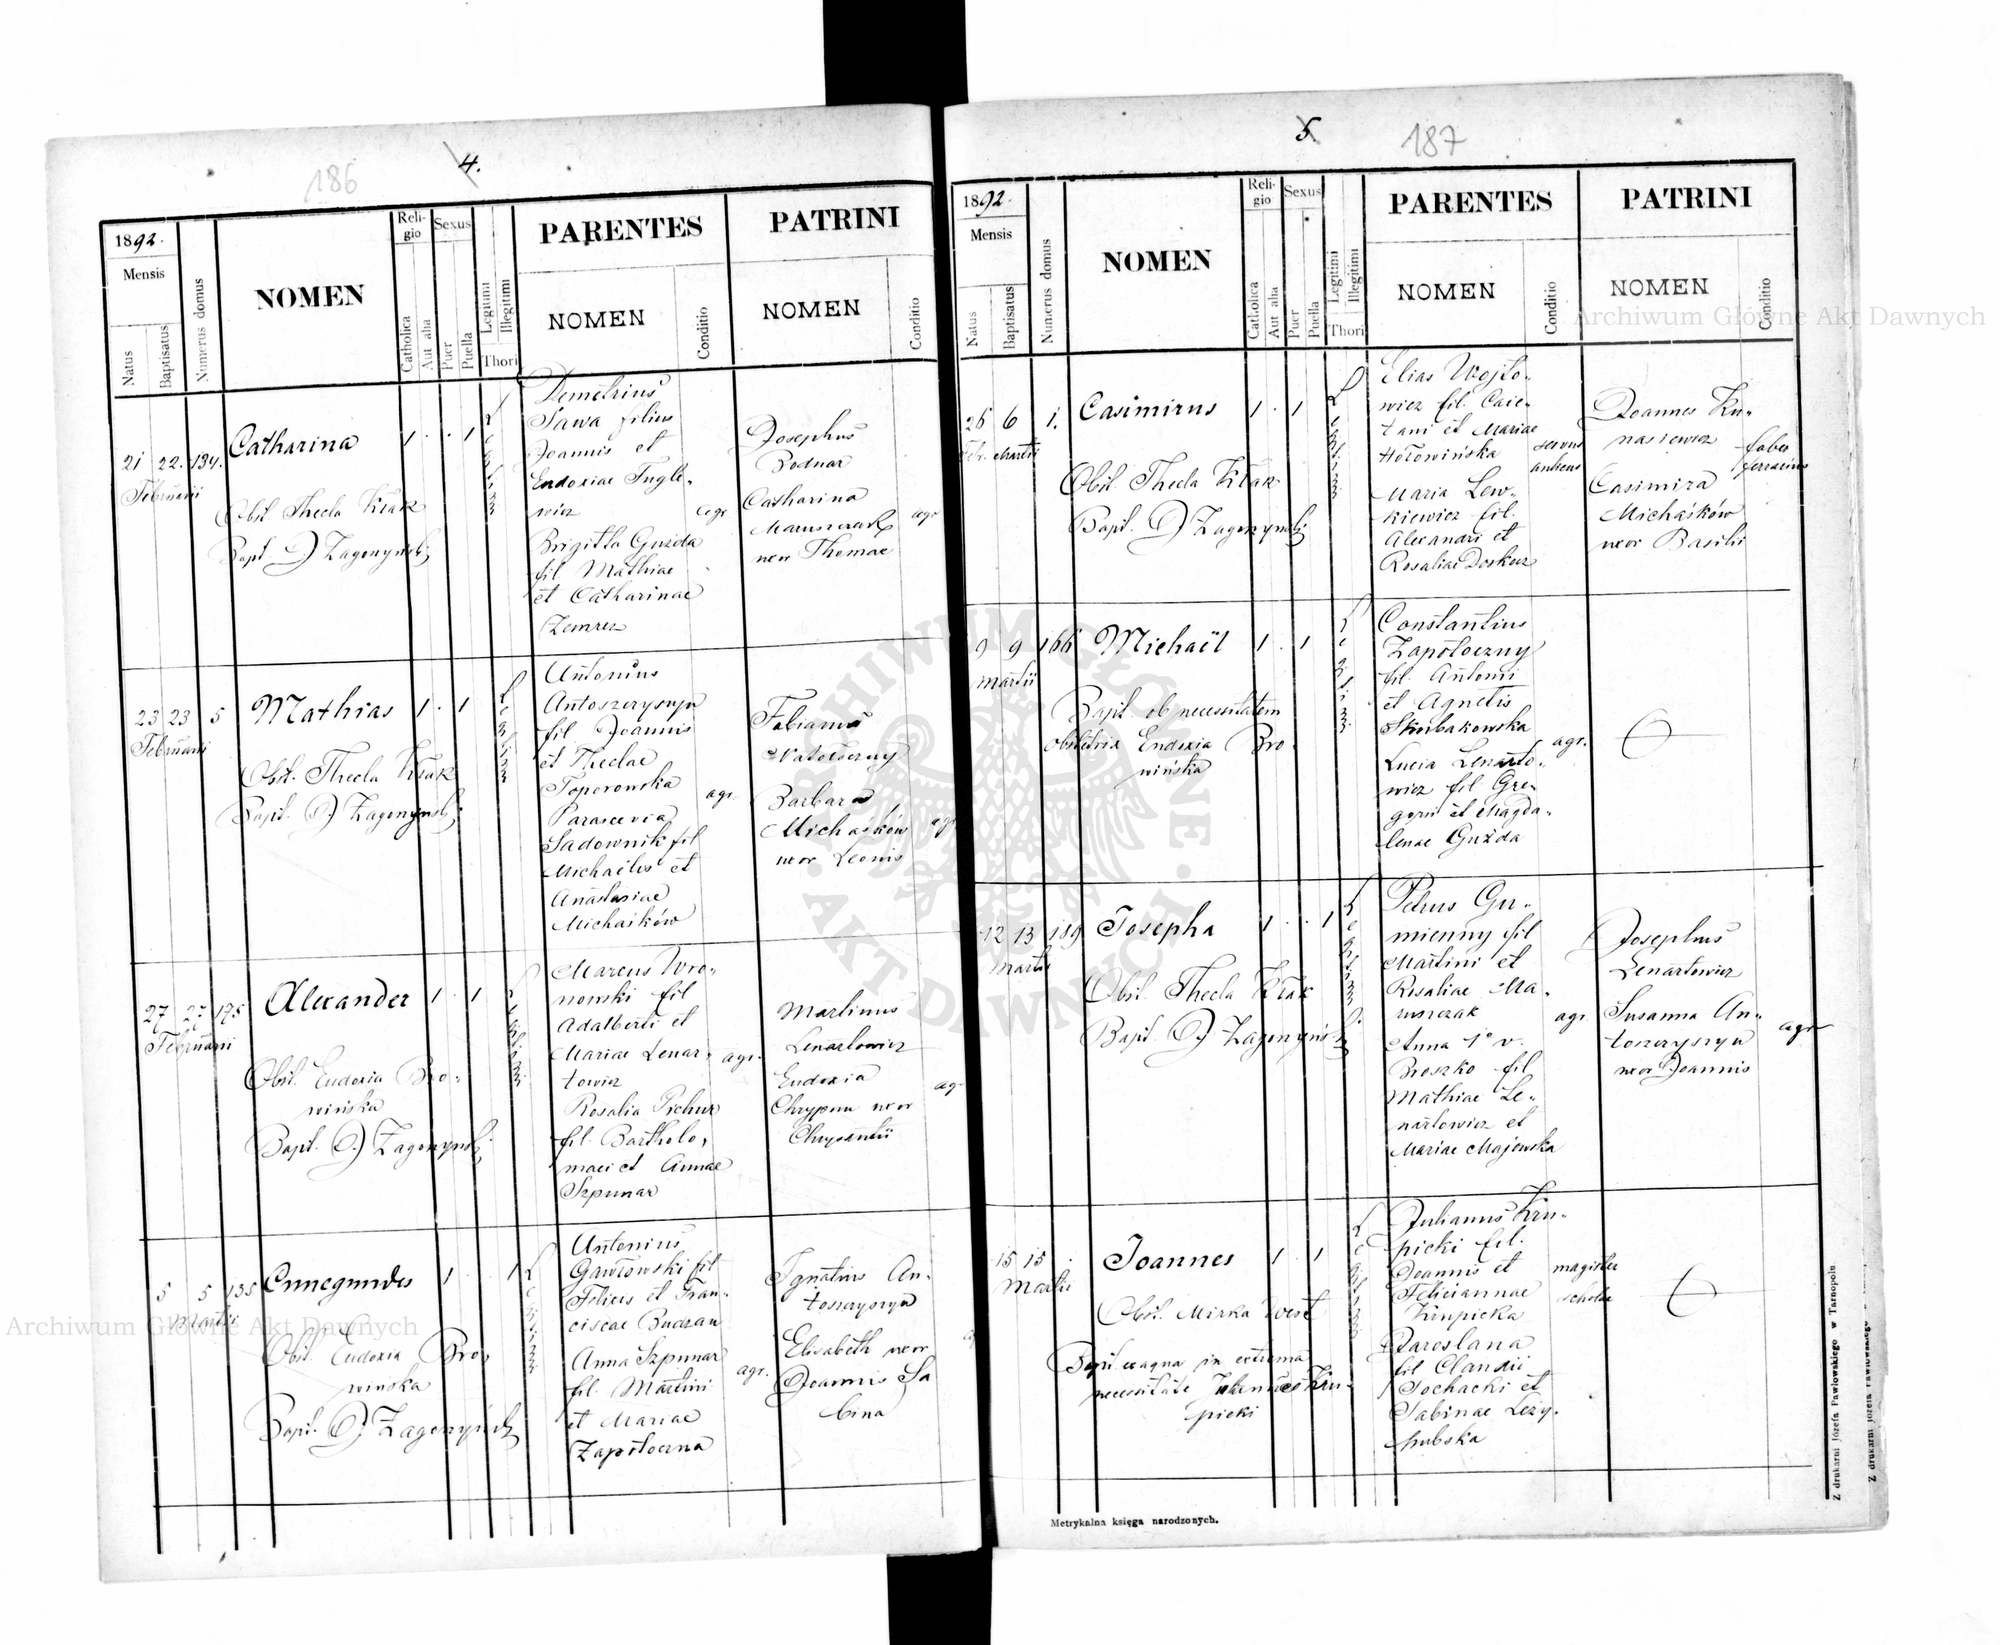 186
4.
1892.
Mensis
Natus
Baptisatus
Numerus domus
NOMEN
Religio
Catholica
Aut alia
Sexus
Puer
Puella
Legitimi
Illegitimi
Thori
PARENTES
NOMEN
Conditio
PATRINI
NOMEN
Conditio
21 22. 134.
Februarii
Catharina
1 . . 1
Obst. Thecla Kłak
Bapt. D Zagonyński
Demetrius
Sawa filius
Joannis et
Eudoxiae Jugle-
wicz
Brigitta Guzda
fil Mathiae
et Catharinae
Zemrez
agr
Josephus
Bodnar
Catharina
Maruszczak
uxor Thomae
agr
23 23 5
Februarii
Mathias
1 . 1
Obst. Thecla Kłak
Bapt. D. Zagonyński
Antonius
Antoszczyszyn
fil Joannis
et Theclae
Toporowska
Parascevia
Sadownik fil
Michaëlis et
Anastasiae
Michaśków
agr.
Fabianus
Barbara
Michaśków
uxor Leonis
agr
27 27 175
Februarii
Alexander
1 . 1
Obst. Eudoxia Bro-
wińska
Bapt. D Zagonyński
Marcus Wro-
nowski fil
Adalberti et
Mariae Lenar-
towicz
Rosalia Pichur
fil. Bartholo-
maei et Annae
Szpunar
agr.
Martinus
Lenartowicz
Eudoxia
Chrypna uxor
Chrysantii
ag-
5 5 135
Martii
Cunegundes
1 1
Obst. Eudoxia Bro-
wińska
Bapt. D Zagonyński
Antonius
Gawłowski fil
Felicis et Fran-
ciscae Budzan
Anna Szpunar
fil. Martini
et Mariae
Zapołoczna
agr.
Ignatius An-
toszczyszyn
Elisabeth uxor
Joannis Sa
bina
5
187
1892.
Mensis
Natus
Baptisatus
Numerus domus
NOMEN
Religio
Catholica
Aut alia
Sexus
Puer
Puella
Legitimi
Illegitimi
Thori
PARENTES
NOMEN
Conditio
PATRINI
NOMEN
Conditio
26 6 1.
Feb. Martii
Casimirus
1 . 1
Obst. Thecla Kłak
Bapt. D Zagonyński
Elias Wojto-
wicz fil. Caie-
tani et Mariae
Hołowińska
Maria Lew-
kiewicz fil.
Alexandri et
Rosaliae Doskocz
servus
aulicus
Joannes Ku-
nasiewicz
Casimira
Michaśków
uxor Basilii
faber
ferrarius
9 9 166
Martii
Michaël
1 . 1
Bapt ob necessitatem
obstetrix Eudoxia Bro-
wińska
Constantius
Zapołoczny
fil. Antonii
et Agnetis
Skorbakowska
Lucia Lenarto-
wicz fil Gre-
gorii et Magda-
lenae Guzda
agr.
12 13 189
Martii
Josepha
1 . . 1
Obst. Thecla Kłak
Bapt. D. Zagonyński
Petrus Gu-
mienny fil
Martini et
Rosaliae Ma-
ruszczak
Anna 1° v.
Broszko fil
Mathiae Le-
nartowicz et
Mariae Majewska
agr.
Josephus
Lenartowicz
Susanna An-
toszczyszyn
uxor Joannis
agr
15 15 .
Martii
Joannes
1 . 1
Obst. Mirka West
Bapt. ex aqua in extrema
necessitate Julianus Kru-
picki
Julianus Kru-
picki fil.
Joannis et
Feliciannae
Krupicka
Jaroslana
fil Claudii
Sochacki et
Sabinae Lezy-
hubska
magister
scholae
Metrykalna księga narodzonych.
Z drukarni Józefa Pawłowskiego w Tarnopolu
Z drukarni Józefa Pawłowskiego
Archiwum Główne Akt Dawnych
Archiwum Główne Akt Dawnych
ARCHIWUM GŁÓWNE
· AKT DAWNYCH ·